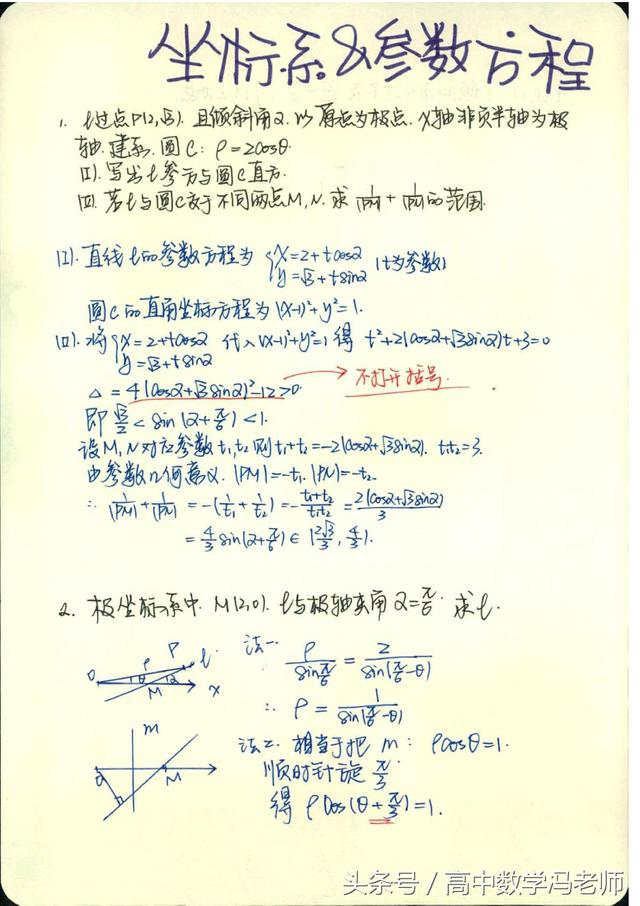 坐标系&参数方程
1. l过点P(2,√3). 且倾斜角α. 以原点为极点. x轴非负半轴为极
轴. 建系. 圆C: ρ=2cosθ.
(I). 写出l参方与圆C直方.
(II). 若l与圆C交于不同两点M,N. 求 1/|PM| + 1/|PN| 的范围.
(I). 直线l的参数方程为 {x=2+tcosα
y=√3+tsinα (t为参数)
圆C的直角坐标方程为 (x-1)²+y²=1.
(II). 将{x=2+tcosα 代入(x-1)²+y²=1 得 t²+2(cosα+√3sinα)t+3=0
y=√3+tsinα
Δ=4(cosα+√3sinα)²-12>0. 不打开括号.
即 √3/2 < sin(α+π/6) < 1.
设M,N对应参数t₁,t₂则t₁+t₂=-2(cosα+√3sinα). t₁t₂=3.
由参数几何意义. |PM|=-t₁. |PN|=-t₂.
∴ 1/|PM| + 1/|PN| = -(1/t₁ + 1/t₂) = -(t₁+t₂)/(t₁t₂) = 2(cosα+√3sinα)/3
= 4/3 sin(α+π/6) ∈ (2√3/3, 4/3).
2. 极坐标系中. M(2,0). l与极轴夹角α=π/6. 求l.
法一. ρ/sin π/6 = 2/sin(π/6-θ)
O ρ θ M α P l x
∴ ρ = 1/sin(π/6-θ)
m O M
法2. 相当于把 m: ρcosθ=1.
顺时针旋 π/3.
得 ρcos(θ+π/3)=1.
头条号 / 高中数学冯老师